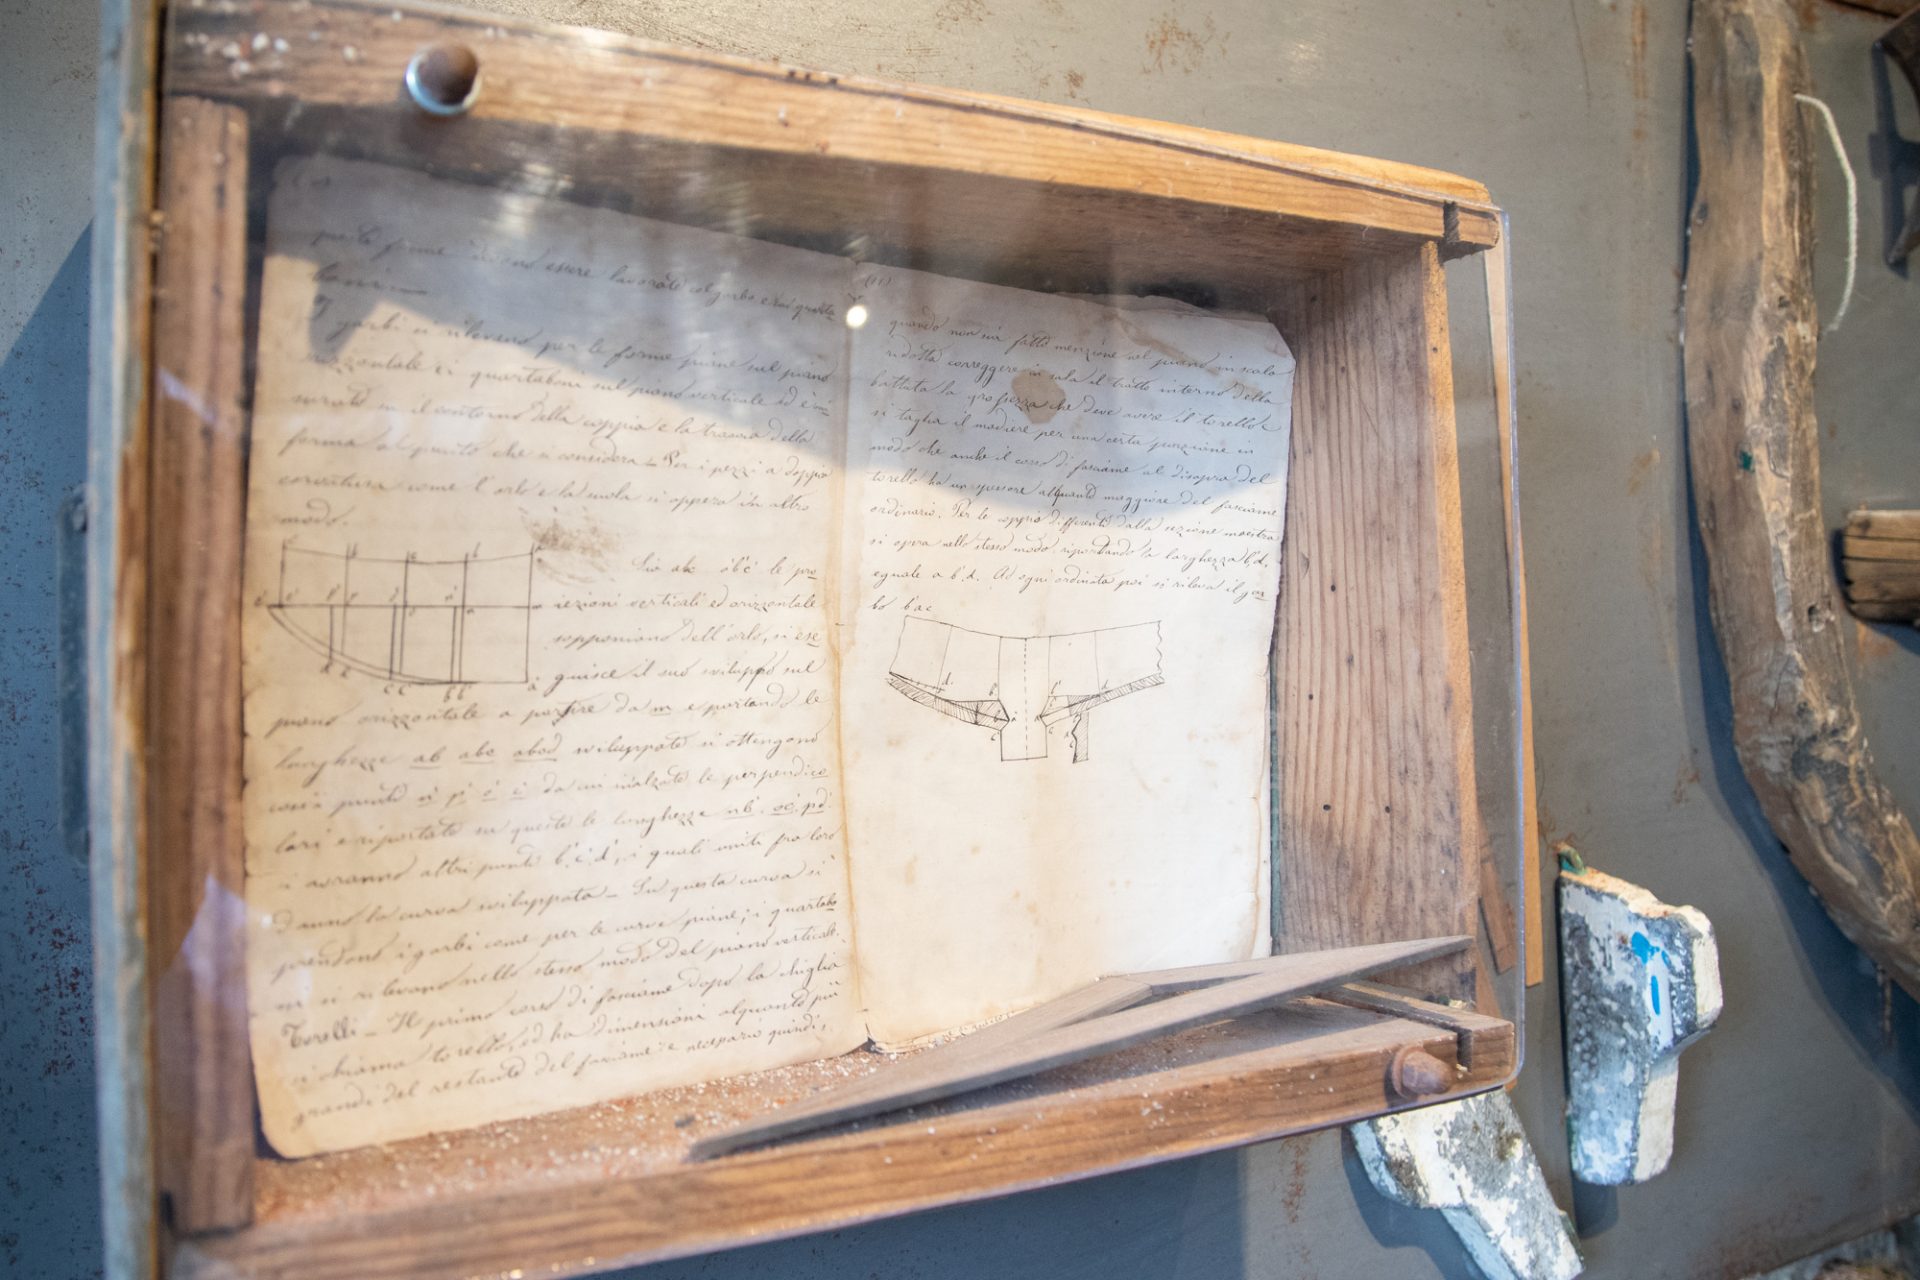 essere lavorate col garbo e coi quarta
boni
I garbi si rilevano per le forme piane sul piano
orizzontale e i quartaboni sul piano verticale ed è mi
surato il contorno della coppia e la traccia della
forma al punto che si considera _ Per i pezzi a doppia
curvatura come l'orlo e la si opera in altro
modo.
Sia abc a'b'c' le pro
iezioni verticali ed orizzontale
supponiamo dell'orlo, si ese
guisce il suo sviluppo sul
piano orizzontale a partire da m e portando le
lunghezze ab abc abcd sviluppate si ottengono
così i punti da cui inalzate le perpendico
lari e riportate su queste le lunghezze
si avranno altri punti b'. c'. d', i quali uniti fra loro
danno la curva sviluppata _ Su questa curva si
prendono i garbi come per le curve piane; i quartabo
ni si rilevano nello stesso modo del piano verticale.
Torelli _ Il primo corso di fasciame dopo la chiglia
si chiama torello, ed ha dimensioni alquanto più
grandi del restante del fasciame: è necessario quindi,
(11)
quando non sia fatto menzione nel piano in scala
ridotta correggere in sala il tratto interno della
battuta la grossezza che deve avere il torello e
si taglia il madiere per una certa porzione in
modo che anche il corso di fasciame al disopra del
torello ha un spessore alquanto maggiore del fasciame
ordinario. Per le coppie differenti dalla sezione maestra
si opera nello stesso modo, riportando la larghezza b'.d.
eguale a b'.d. Ad ogni ordinata poi si rileva il gar
bo b'ac